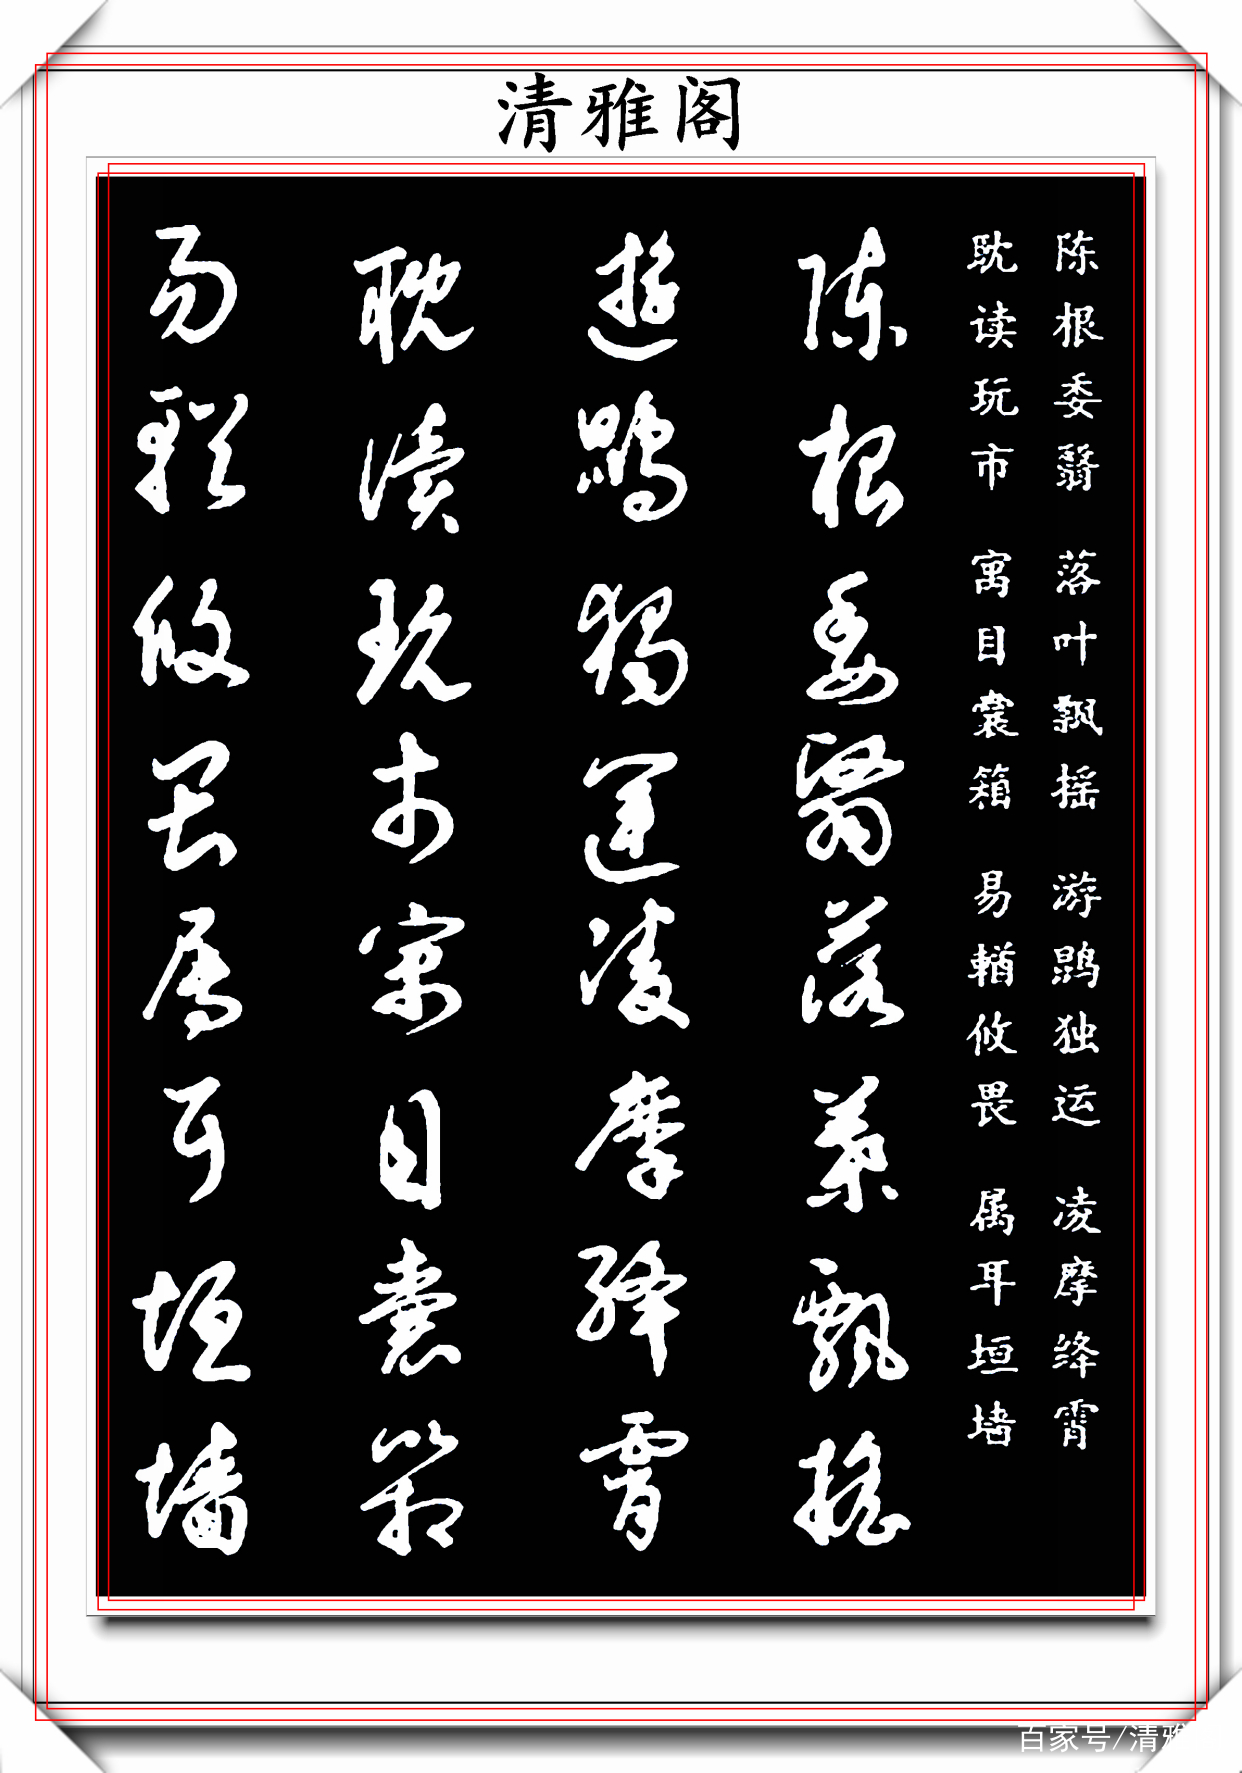 清雅阁
陈根委翳 落叶飘摇 游鹍独运 凌摩绛霄
耽读玩市 寓目囊箱 易輶攸畏 属耳垣墙
陈根委翳落叶飘摇
遊鹍獨運凌摩絳霄
耽讀玩市寓目囊箱
易輶攸畏属耳垣墙
百家号/清雅